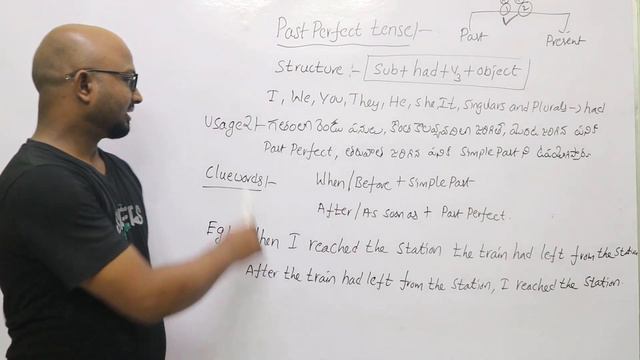 Past Perfect tense/-
① ②
Past Present
Structure :- Sub + had + V3 + object
I, We, You, They, He, She, It, Singulars and Plurals → had
Usage 2 :- గతంలో రెండు పనులు, జరిగితే, మొదట జరిగిన పనికి
Past Perfect, తరువాత జరిగిన పనికి Simple Past ని
Cluewords/- When/Before + Simple Past
After/As soon as + Past Perfect.
Eg:- When I reached the Station the train had left from the station
After the train had left from the Station, I reached the Station.